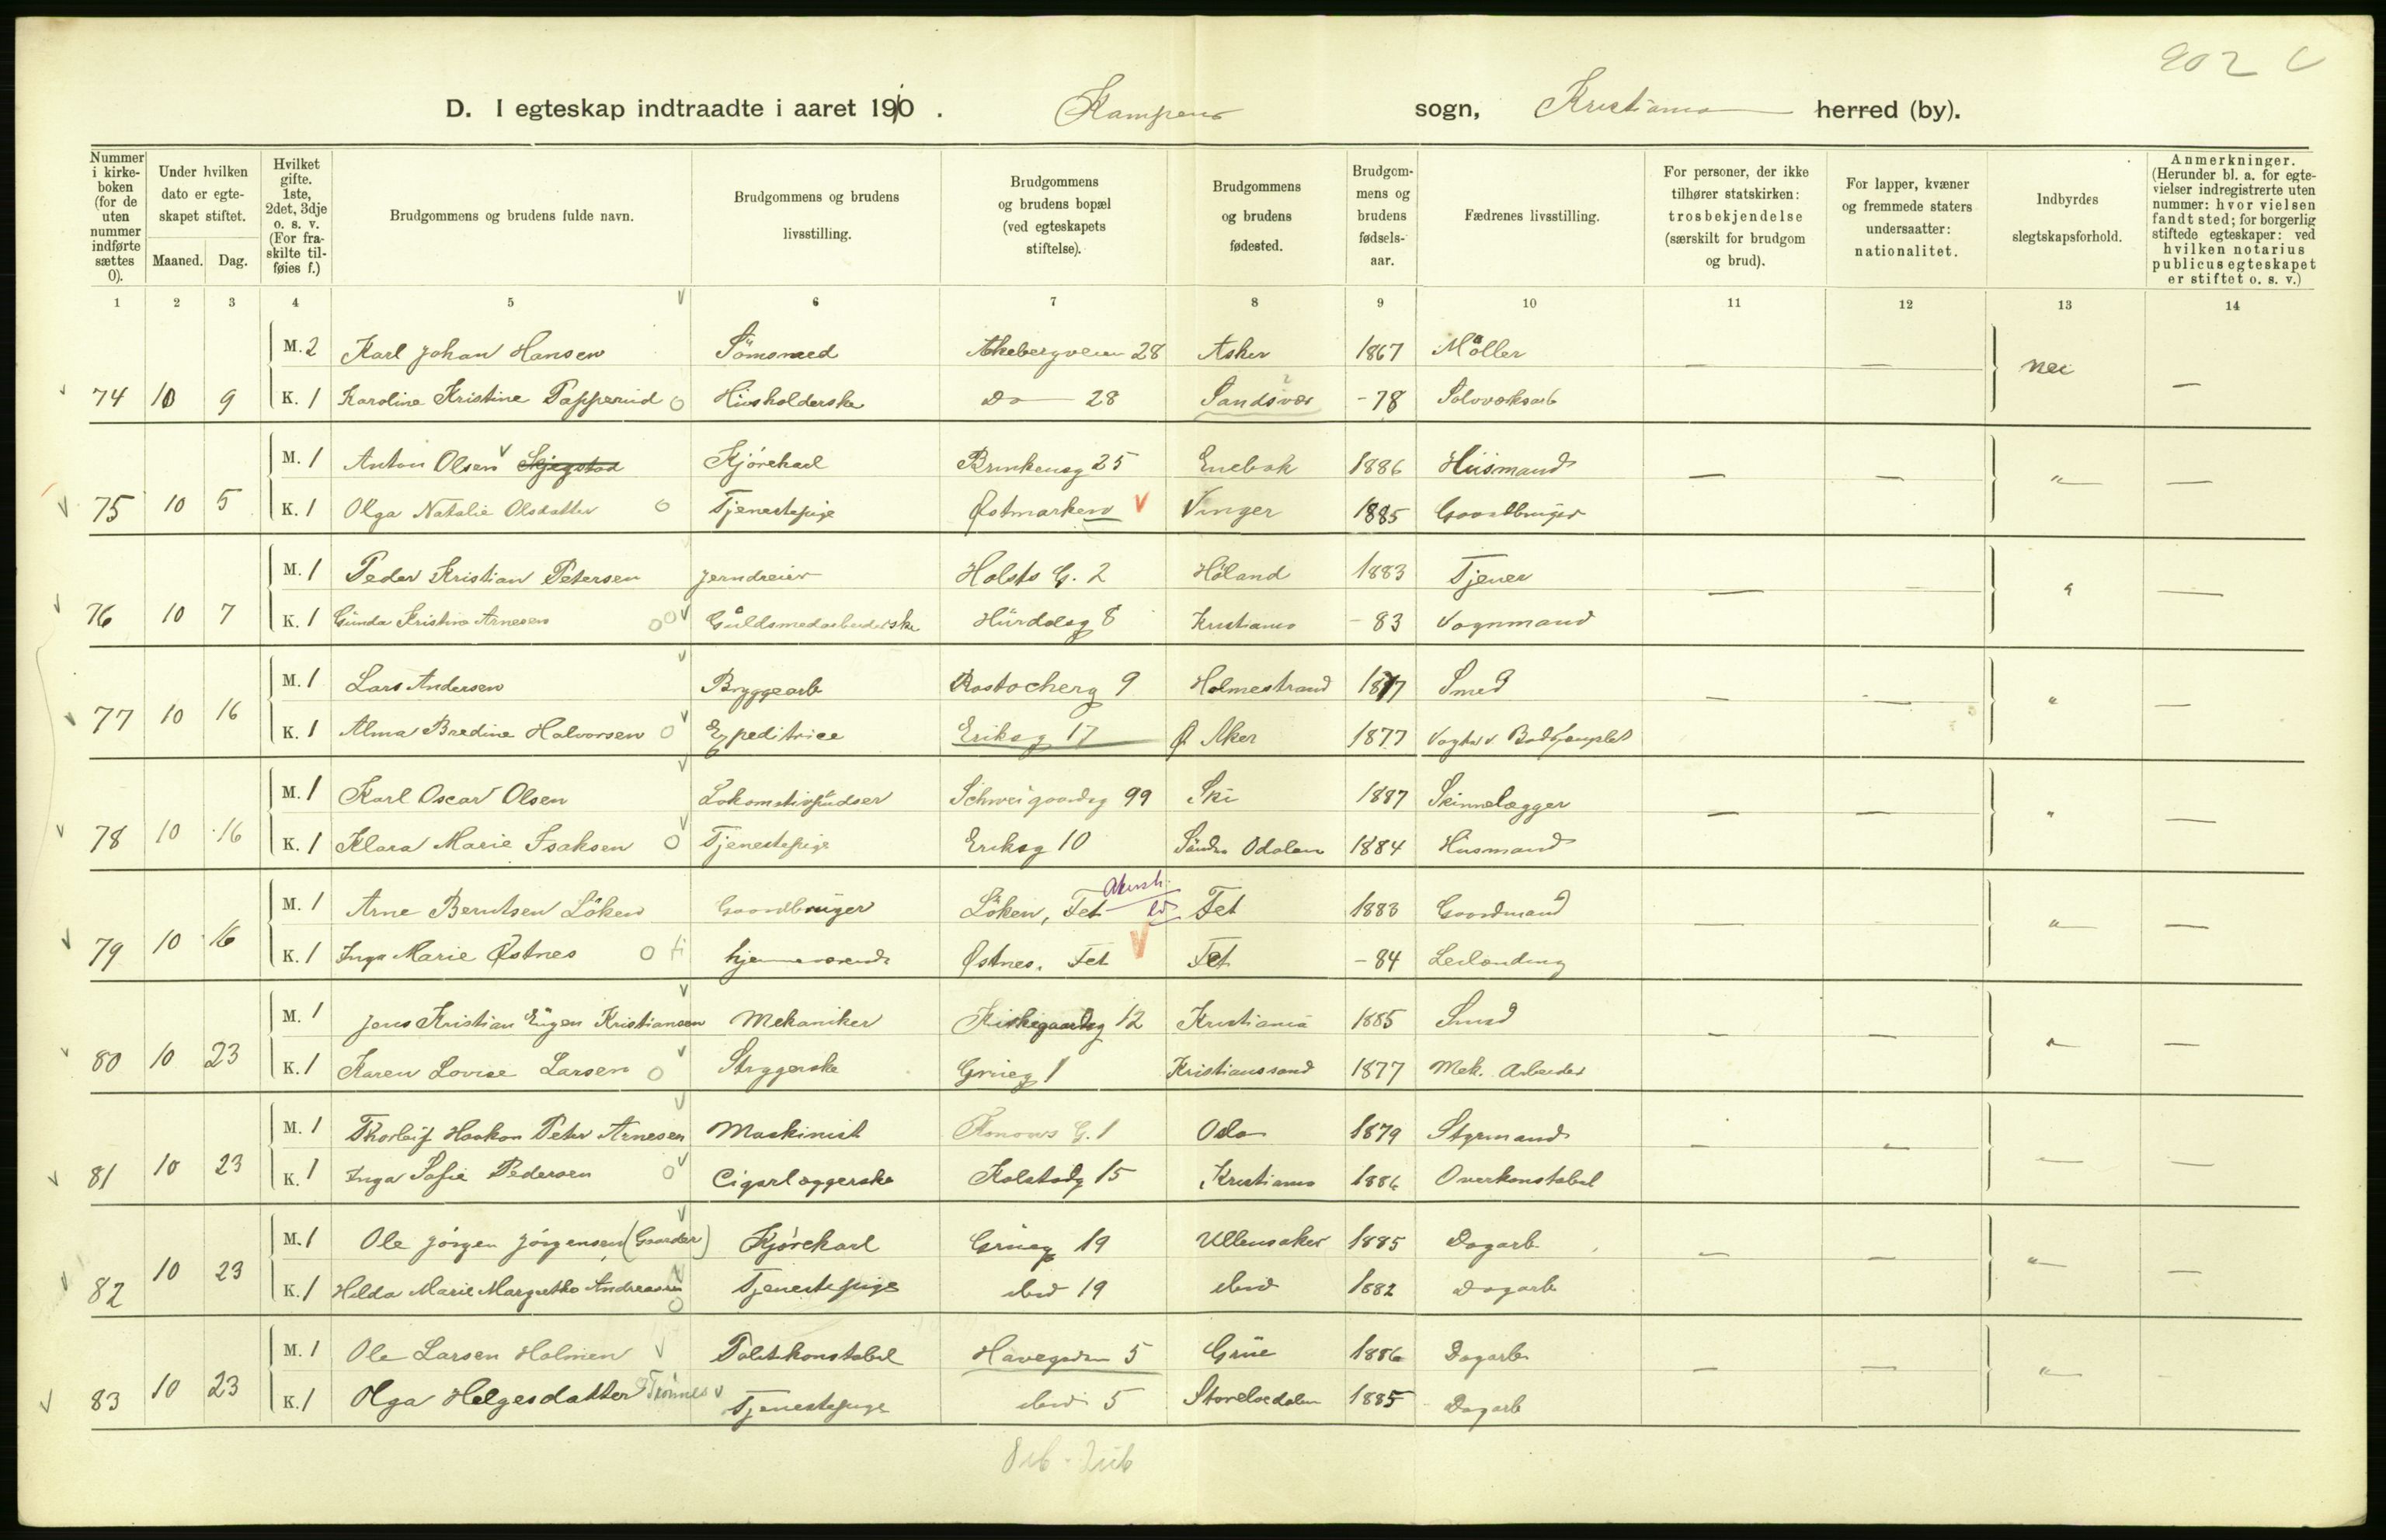 902 C
D. I egteskap indtraadte i aaret 1910. Kampens sogn, Kristiania herred (by).
Nummer i kirkeboken (for de uten nummer indførte sættes 0).
Under hvilken dato er egteskapet stiftet.
Maaned. Dag.
Hvilket gifte. 1ste, 2det, 3dje o. s. v. (For fraskilte tilføies f.)
Brudgommens og brudens fulde navn.
Brudgommens og brudens livsstilling.
Brudgommens og brudens bopæl (ved egteskapets stiftelse).
Brudgommens og brudens fødested.
Brudgommens og brudens fødselsaar.
Fædrenes livsstilling.
For personer, der ikke tilhører statskirken: trosbekjendelse (særskilt for brudgom og brud).
For lapper, kvæner og fremmede staters undersaatter: nationalitet.
Indbyrdes slegtskapsforhold.
Anmerkninger. (Herunder bl. a. for egtevielser indregistrerte uten nummer: hvor vielsen fandt sted; for borgerlig stiftede egteskaper: ved hvilken notarius publicus egteskapet er stiftet o. s. v.)
1 2 3 4 5 6 7 8 9 10 11 12 13 14
M. 2 Karl Johan Hansen Sömsmed Akebergveien 28 Asker 1867 Möller — — nei
74 10 9 K. 1 Karoline Kristine Papperud Husholderske Do 28 Sandsvær - 78 Sölvverksarb —
M. 1 Anton Olsen Skjegstad Kjörekarl Brinkensg 25 Enebak 1886 Husmand — — "
75 10 5 K. 1 Olga Natalie Olsdatter Tjenestepige Østmarken Vinger 1885 Gaardbruger —
M. 1 Peder Kristian Petersen Jerndreier Holsts G. 2 Höland 1883 Tjener — — "
76 10 7 K. 1 Gunda Kristine Arnesen Guldsmedarbeiderske Hurdalsg 8 Kristiania - 83 Vognmand —
M. 1 Lars Andersen Bryggearb Rostockerg 9 Holmestrand 1877 Smed — — "
77 10 16 K. 1 Alma Bredine Halvorsen Expeditrice Eriksg 17 Ø Aker 1877 Vogter v. —
M. 1 Karl Oscar Olsen Lokomotivpudser Schweigaardsg 99 Ski 1887 Skinnelægger — — "
78 10 16 K. 1 Klara Marie Isaksen Tjenestepige Eriksg 10 Söndre Odalen 1884 Husmand —
M. 1 Arne Berntsen Löken Gaardbruger Löken, Fet Akersh. Fet 1883 Gaardmand — — "
79 10 16 K. 1 Inga Marie Østnes hjemmeværende Østnes, Fet Fet - 84 Leilænding —
M. 1 Jens Kristian Eugen Kristiansen Mekaniker Kirkegaardsg 12 Kristiania 1885 Smed — — "
80 10 23 K. 1 Karen Lovise Larsen Strygerske Grueg 1 Kristianssand 1877 Mek. Arbeider —
M. 1 Thorleif Haakon Peter Arnesen Maskinist Konows G. 1 Oslo 1879 Styrmand — — —
81 10 23 K. 1 Inga Sofie Pedersen Cigarlæggerske Kolstadg 15 Kristiania 1886 Overkonstabel —
M. 1 Ole Jörgen Jörgensen (Gaarder) Kjörekarl Grueg 19 Ullensaker 1885 Dagarb — — "
82 10 23 K. 1 Hilda Marie Margrethe Andreassen Tjenestepige ibid 19 ibid 1882 Dagarb —
M. 1 Ole Larsen Holmen Politikonstabel Havegaden 5 Grue 1886 Dagarb — — "
83 10 23 K. 1 Olga Helgesdatter Trönnes Tjenestepige ibid 5 Storelvedalen 1885 Dagarb -